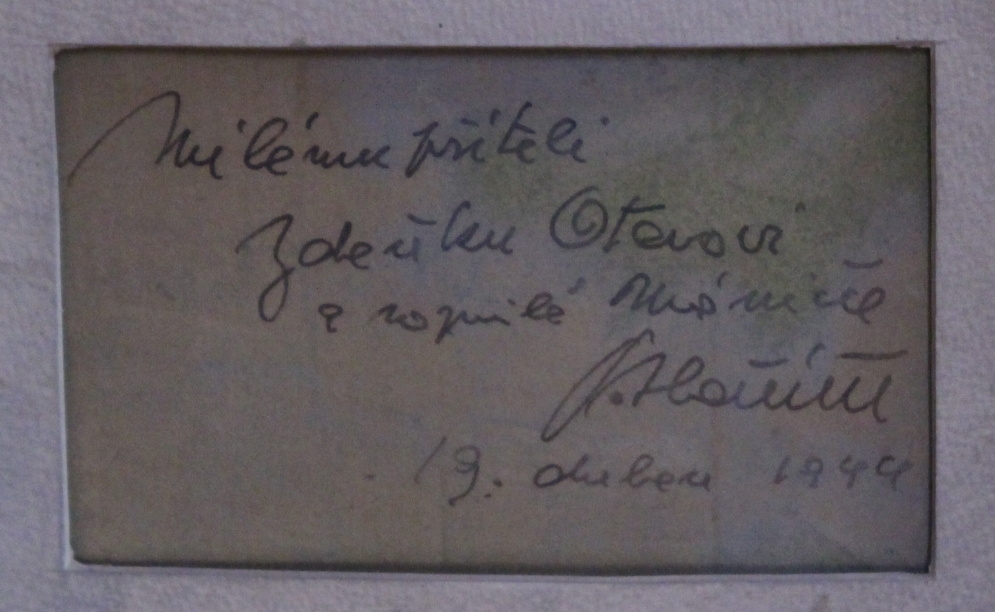 Milému příteli
Zdeňku Otavovi
a rozmilé Mániče
19. duben 1944